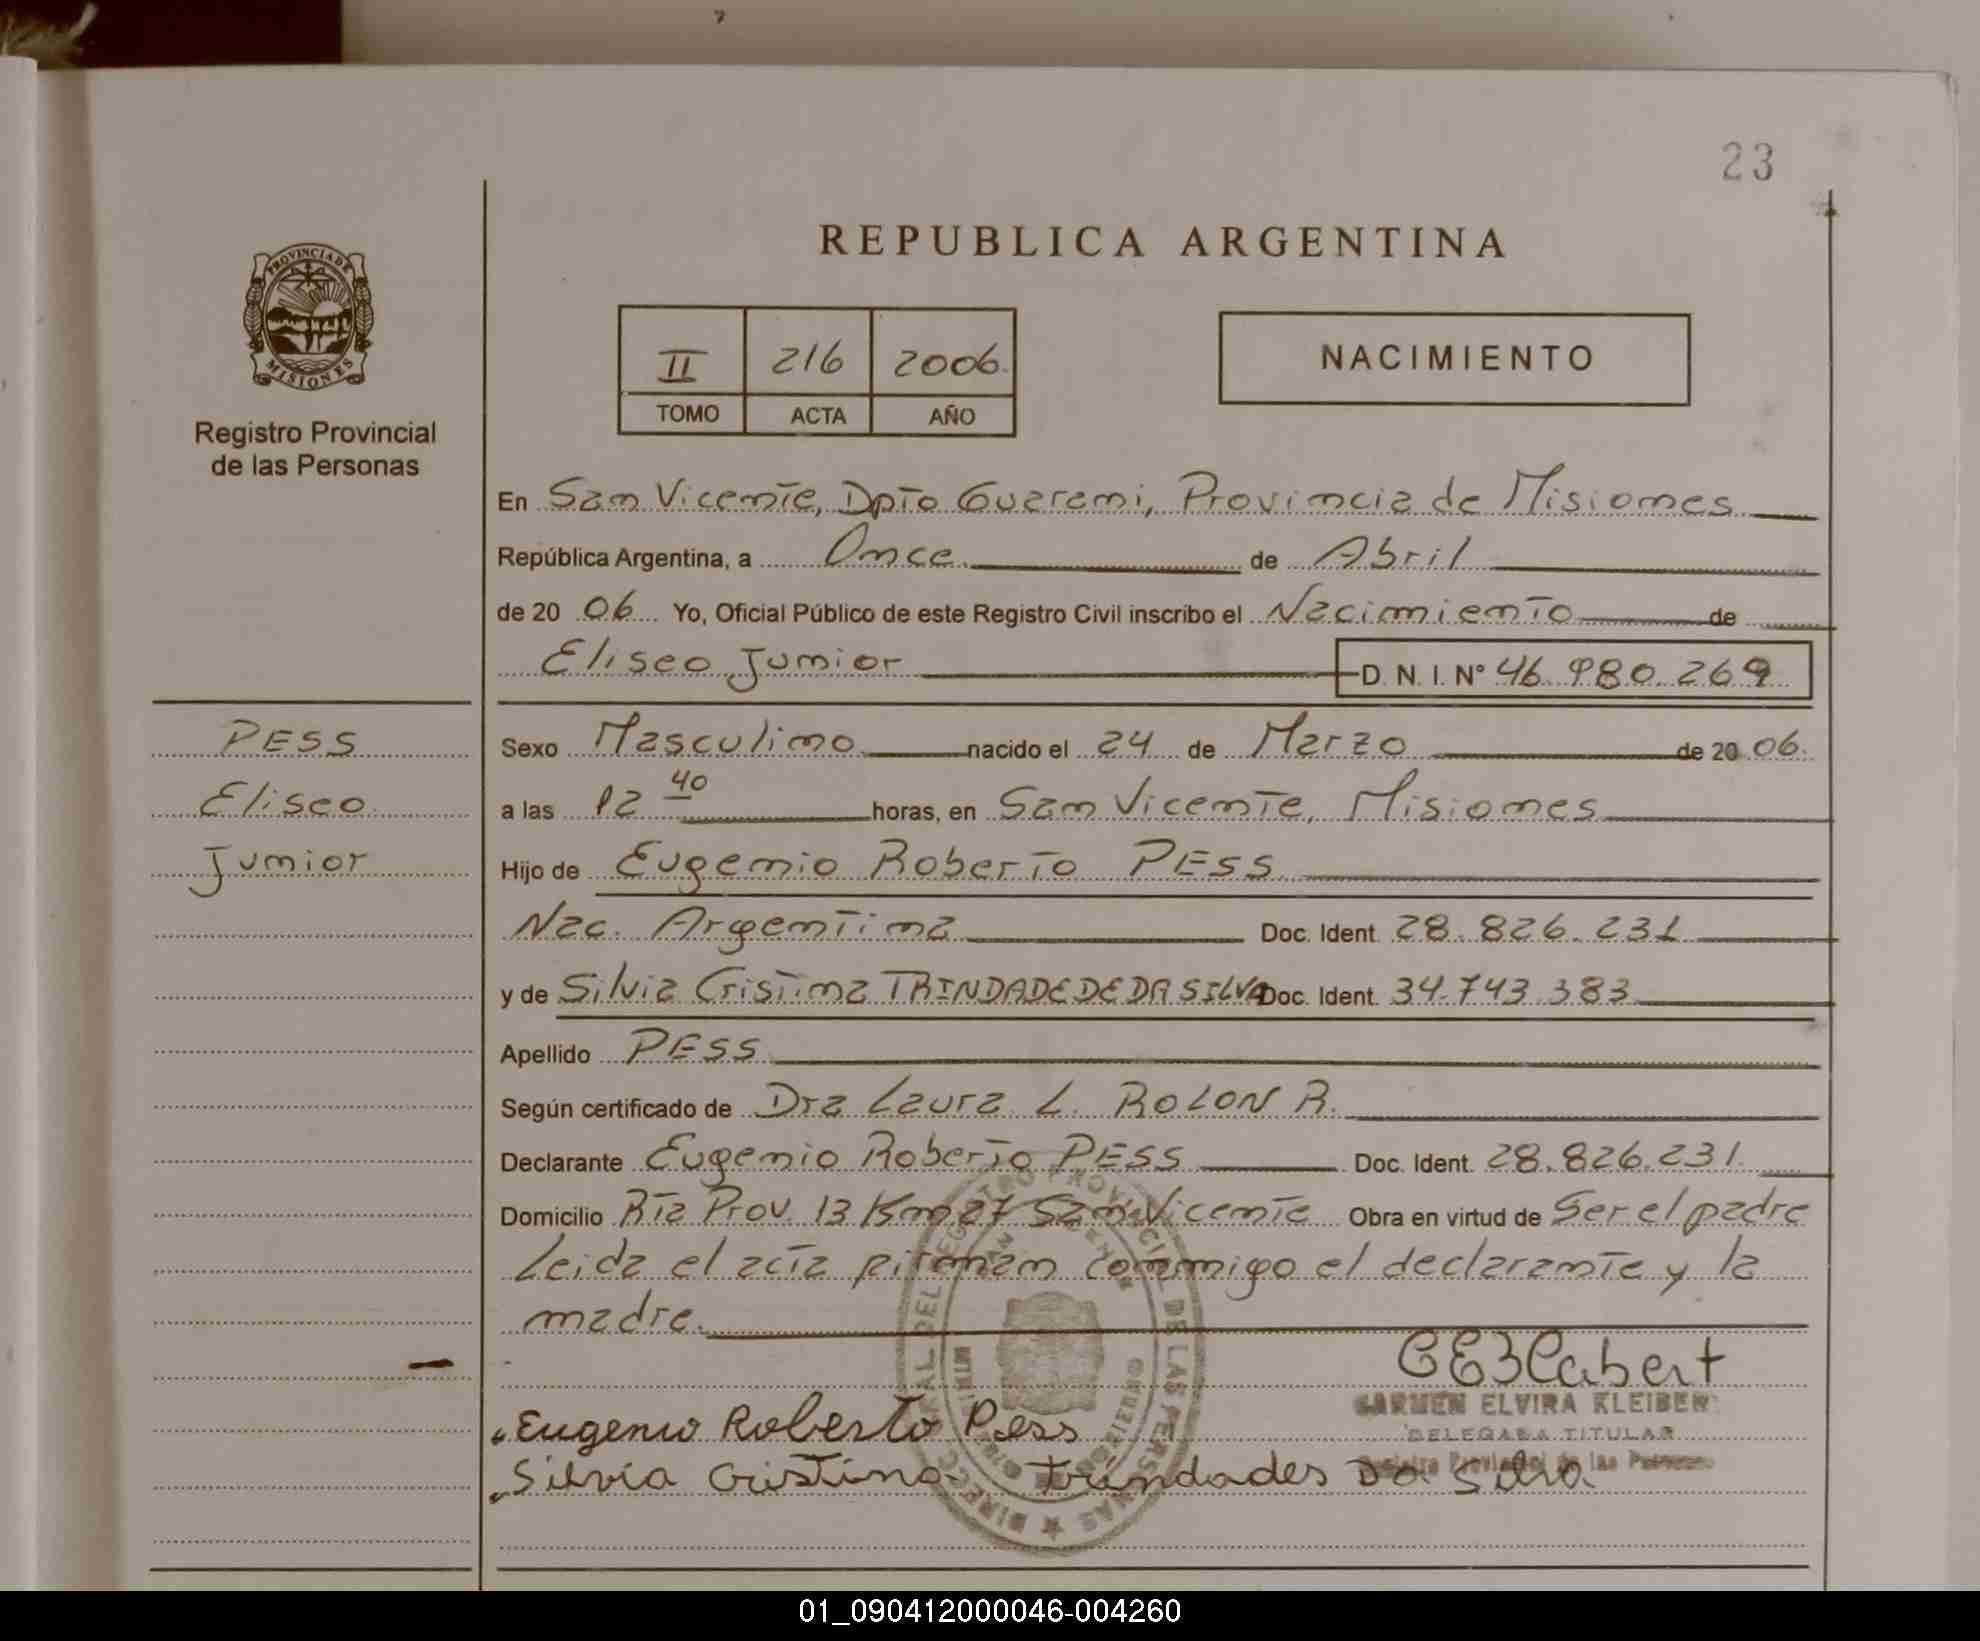 23
REPUBLICA ARGENTINA
PROVINCIA DE
MISIONES
Registro Provincial
de las Personas
II 216 2006
TOMO ACTA AÑO
NACIMIENTO
En San Vicente, Dpto Guarani, Provincia de Misiones
República Argentina, a Once de Abril
de 20 06 Yo, Oficial Público de este Registro Civil inscribo el Nacimiento de
Eliseo Junior D. N. I. Nº 46 980.269
PESS
Eliseo
Junior
Sexo Masculino nacido el 24 de Marzo de 20 06.
a las 12 40 horas, en San Vicente, Misiones
Hijo de Eugenio Roberto PESS
Nac. Argentina Doc. Ident. 28.826.231
y de Silvia Cristina TRINDADE DE DA SILVA Doc. Ident. 34.743.383
Apellido PESS
Según certificado de Dra Laura L. ROLON R.
Declarante Eugenio Roberto PESS Doc. Ident. 28.826.231
Domicilio Rta Prov. 13 Km 27 San Vicente Obra en virtud de Ser el padre
Leida el acta firman conmigo el declarante y la
madre.
CARMEN ELVIRA KLEIBER
DELEGADA TITULAR
Registro Provincial de las Personas
Eugenio Roberto Pess
Silvia Cristina Trindades Da Silva
01_090412000046-004260